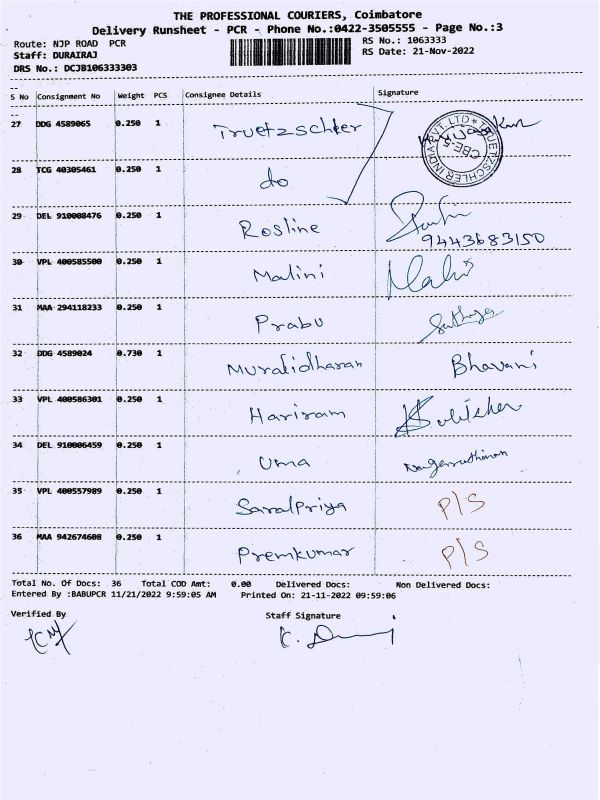 THE PROFESSIONAL COURIERS, Coimbatore
Delivery Runsheet - PCR - Phone No.:0422-3505555 - Page No.:3
Route: NJP ROAD PCR
RS No.: 1063333
Staff: DURAIRAJ
RS Date: 21-Nov-2022
DRS No.: DCJB106333303
S No Consignment No Weight PCS Consignee Details Signature
27 DDG 4589065 0.250 1 Truetzschler
28 TCG 40305461 0.250 1 do
29 DEL 910008476 0.250 1 Rosline
9443683150
30 VPL 400585500 0.250 1 Malini Malini
31 MAA 294118233 0.250 1 Prabu Sathya
32 DDG 4589024 0.730 1 Muralidharan Bhavani
33 VPL 400586301 0.250 1 Hariram
34 DEL 910006459 0.250 1 Uma
35 VPL 400557989 0.250 1 SaralPriya P/S
36 MAA 942674608 0.250 1 Premkumar P/S
Total No. Of Docs: 36 Total COD Amt: 0.00 Delivered Docs: Non Delivered Docs:
Entered By :BABUPCR 11/21/2022 9:59:05 AM Printed On: 21-11-2022 09:59:06
Verified By Staff Signature